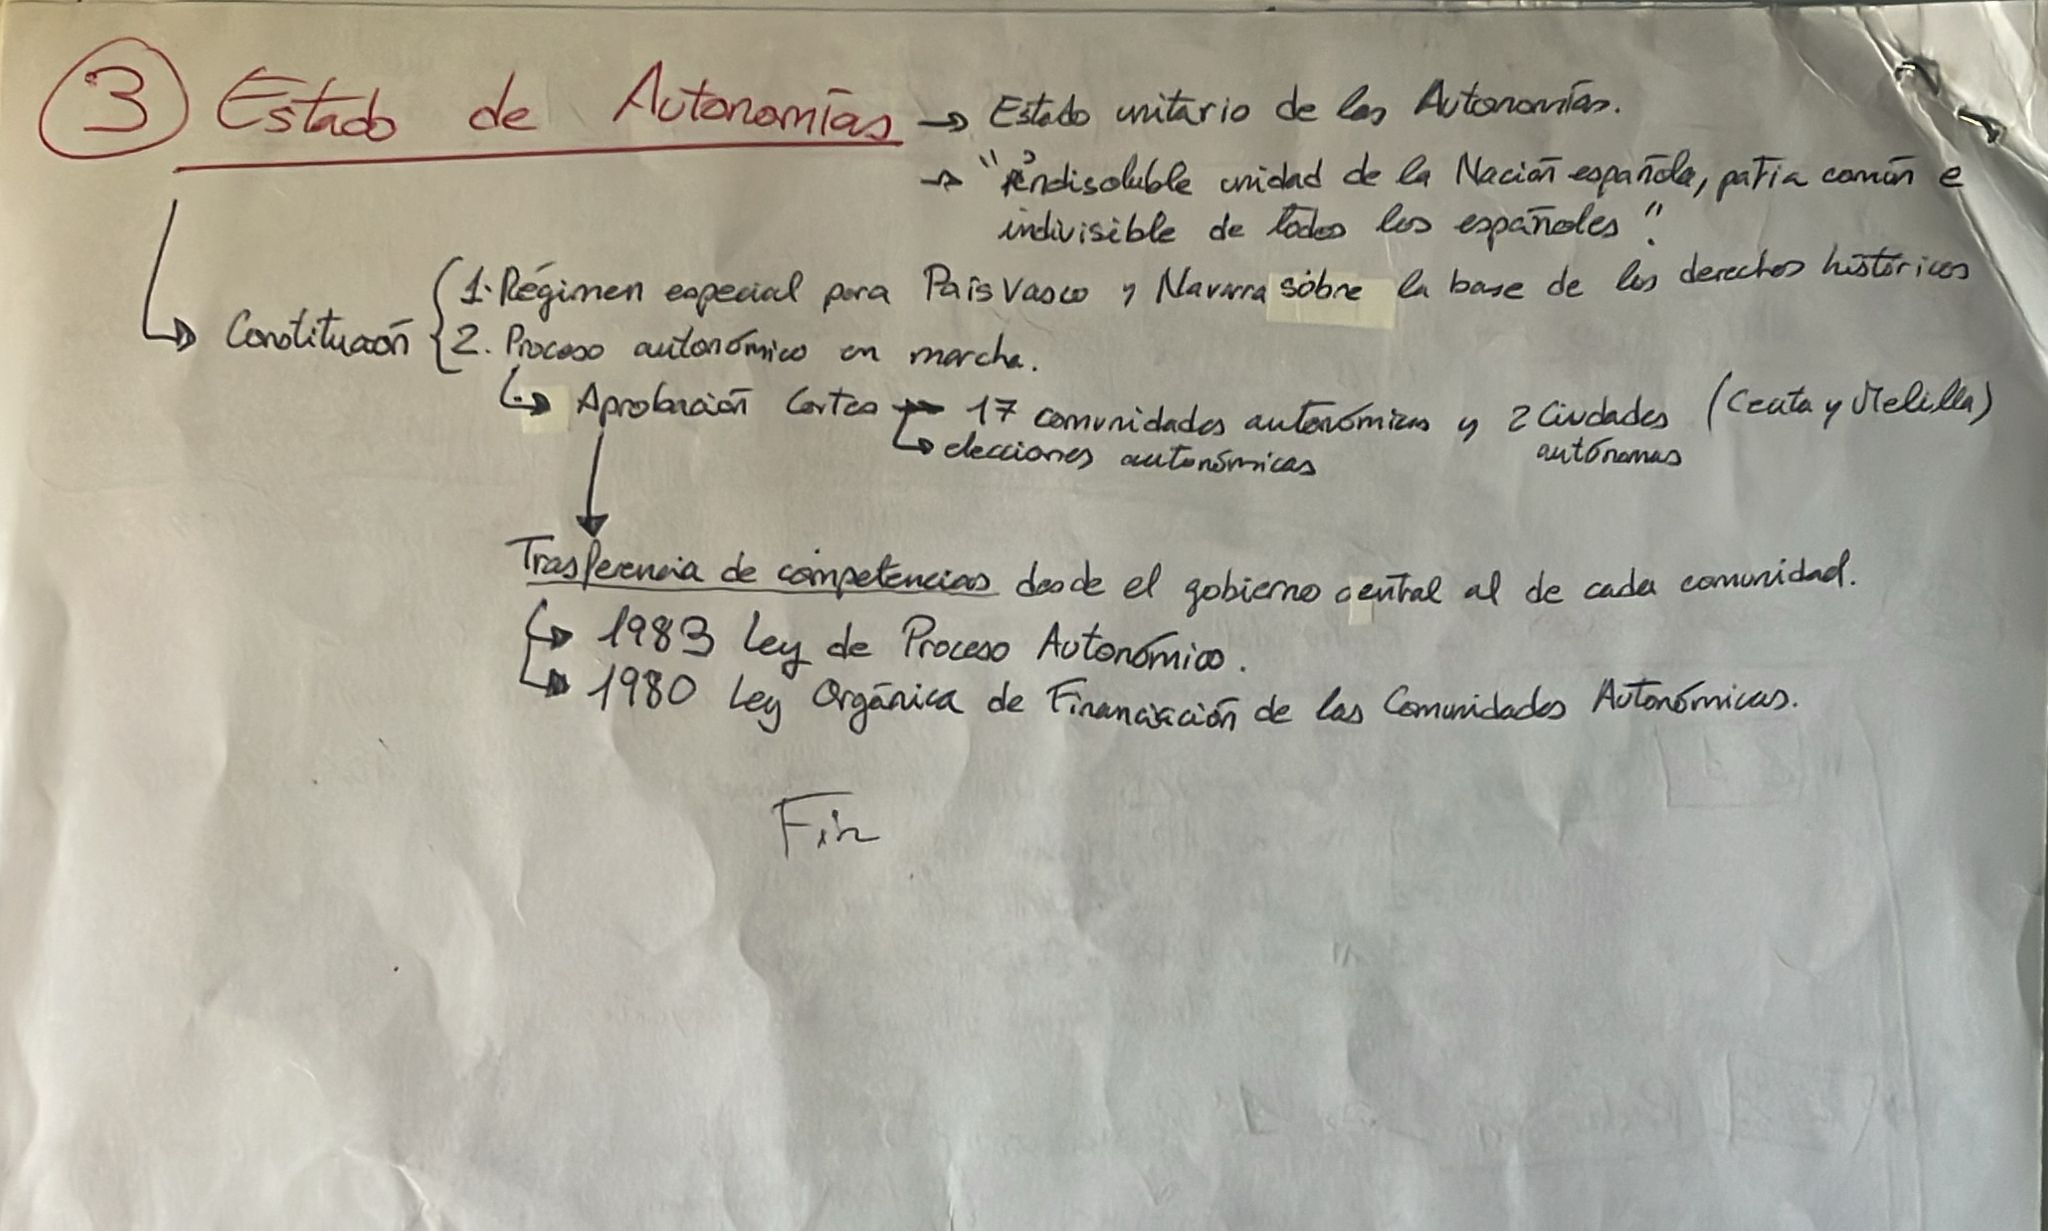 3 Estado de Autonomías → Estado unitario de las Autonomías.
→ "indisoluble unidad de la Nación española, patria común e
indivisible de todos los españoles".
1. Régimen especial para País Vasco y Navarra sobre la base de los derechos históricos
Constitución 2. Proceso autonómico en marcha.
Aprobación Cortes → 17 comunidades autonómicas y 2 Ciudades (Ceuta y Melilla)
elecciones autonómicas autónomas
Trasferencia de competencias desde el gobierno central al de cada comunidad.
1983 Ley de Proceso Autonómico.
1980 Ley Orgánica de Financiación de las Comunidades Autonómicas.
Fin